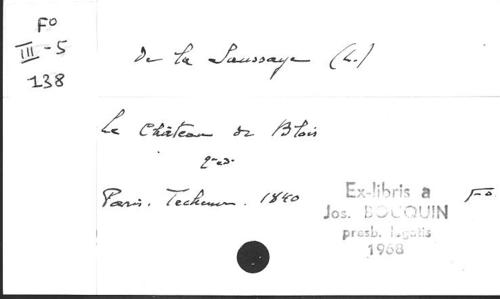 Fo
III-5
138
De la Saussaye (L.)
Le Château de Blois
2e ed.
Paris. Techener. 1840
Fo
Ex-libris a
Jos. BOUCQUIN
presb. legatis
1968